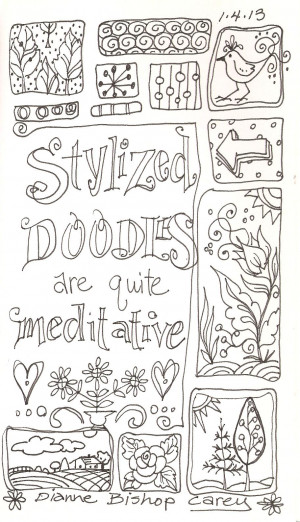 1.4.13
Stylized
DOODLES
are quite
meditative
Dianne Bishop Carey